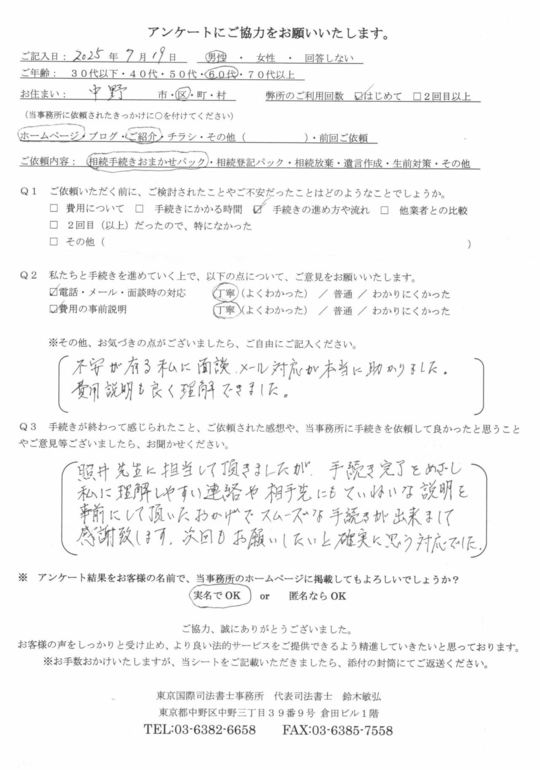 アンケートにご協力をお願いいたします。
ご記入日：2025年7月19日 男性 ・ 女性 ・ 回答しない
ご年齢：３０代以下・４０代・５０代・６０代・７０代以上
お住まい： 中野 市・区・町・村 弊所のご利用回数 ☑はじめて □２回目以上
（当事務所に依頼されたきっかけに○を付けてください）
ホームページ・ブログ・ご紹介・チラシ・その他（ ）・前回ご依頼
ご依頼内容：相続手続きおまかせパック・相続登記パック・相続放棄・遺言作成・生前対策・その他
Ｑ１ ご依頼いただく前に、ご検討されたことやご不安だったことはどのようなことでしょうか。
□ 費用について □ 手続きにかかる時間 ☑ 手続きの進め方や流れ □ 他業者との比較
□ ２回目（以上）だったので、特になかった
□ その他（ ）
Ｑ２ 私たちと手続きを進めていく上で、以下の点について、ご意見をお願いいたします。
☑電話・メール・面談時の対応 丁寧（よくわかった） ／ 普通 ／ わかりにくかった
☑費用の事前説明 丁寧（よくわかった） ／ 普通 ／ わかりにくかった
※その他、お気づきの点がございましたら、ご自由にご記入ください。
不安が有る私に面談、メール対応が本当に助かりました。
費用説明も良く理解できました。
Ｑ３ 手続きが終わって感じられたこと、ご依頼された感想や、当事務所に手続きを依頼して良かったと思うこと
やご意見等ございましたら、お聞かせください。
照井先生に担当して頂きましたが、手続き完了をめざし
私に理解しやすい連絡や相手先にもていねいな説明を
事前にして頂いたおかげでスムーズな手続きが出来まして
感謝致します。次回もお願いしたいと確実に思う対応でした。
※ アンケート結果をお客様の名前で、当事務所のホームページに掲載してもよろしいでしょうか？
実名でOK or 匿名ならOK
ご協力、誠にありがとうございました。
お客様の声をしっかりと受け止め、より良い法的サービスをご提供できるよう精進していきたいと思っております。
※お手数おかけいたしますが、当シートをご記載いただきましたら、添付の封筒にてご返送ください。
東京国際司法書士事務所 代表司法書士 鈴木敏弘
東京都中野区中野三丁目３９番９号 倉田ビル１階
TEL:03-6382-6658 FAX:03-6385-7558